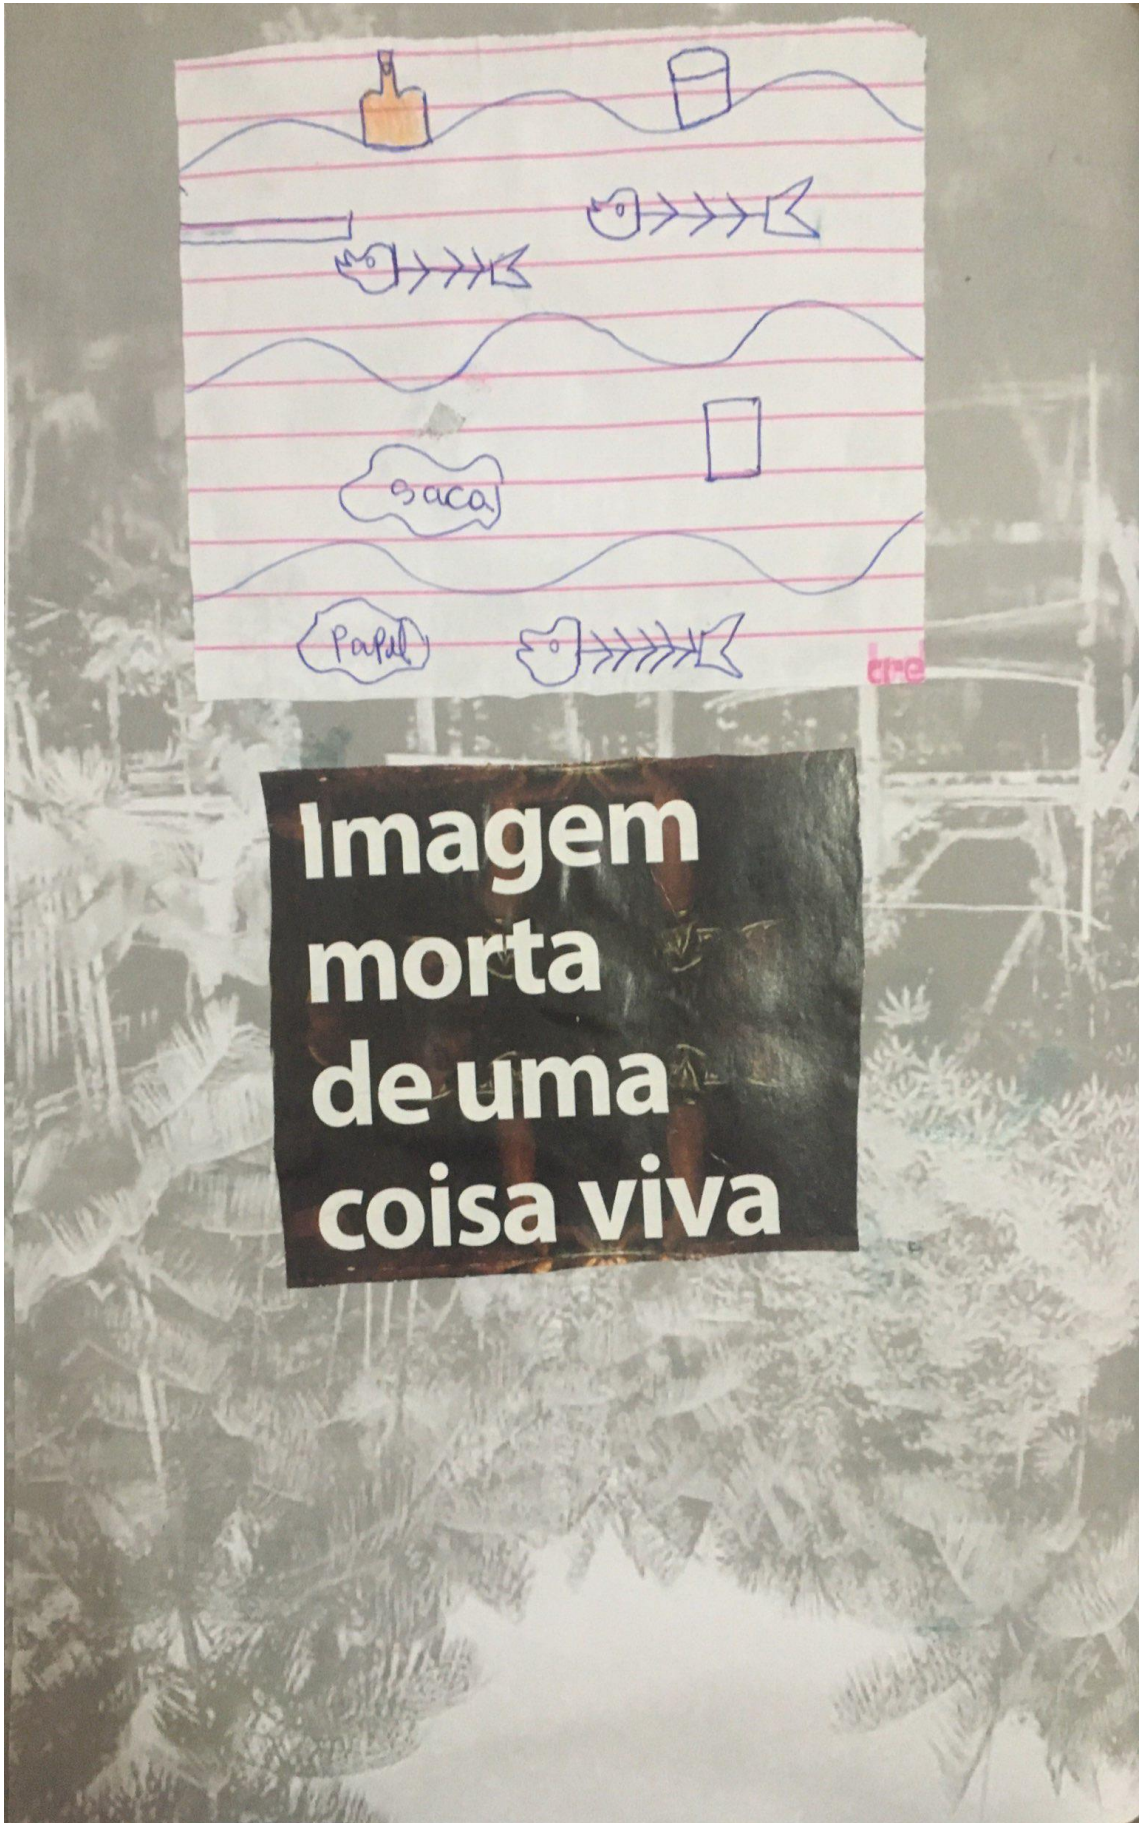 saca
Papel
Imagem
morta
de uma
coisa viva